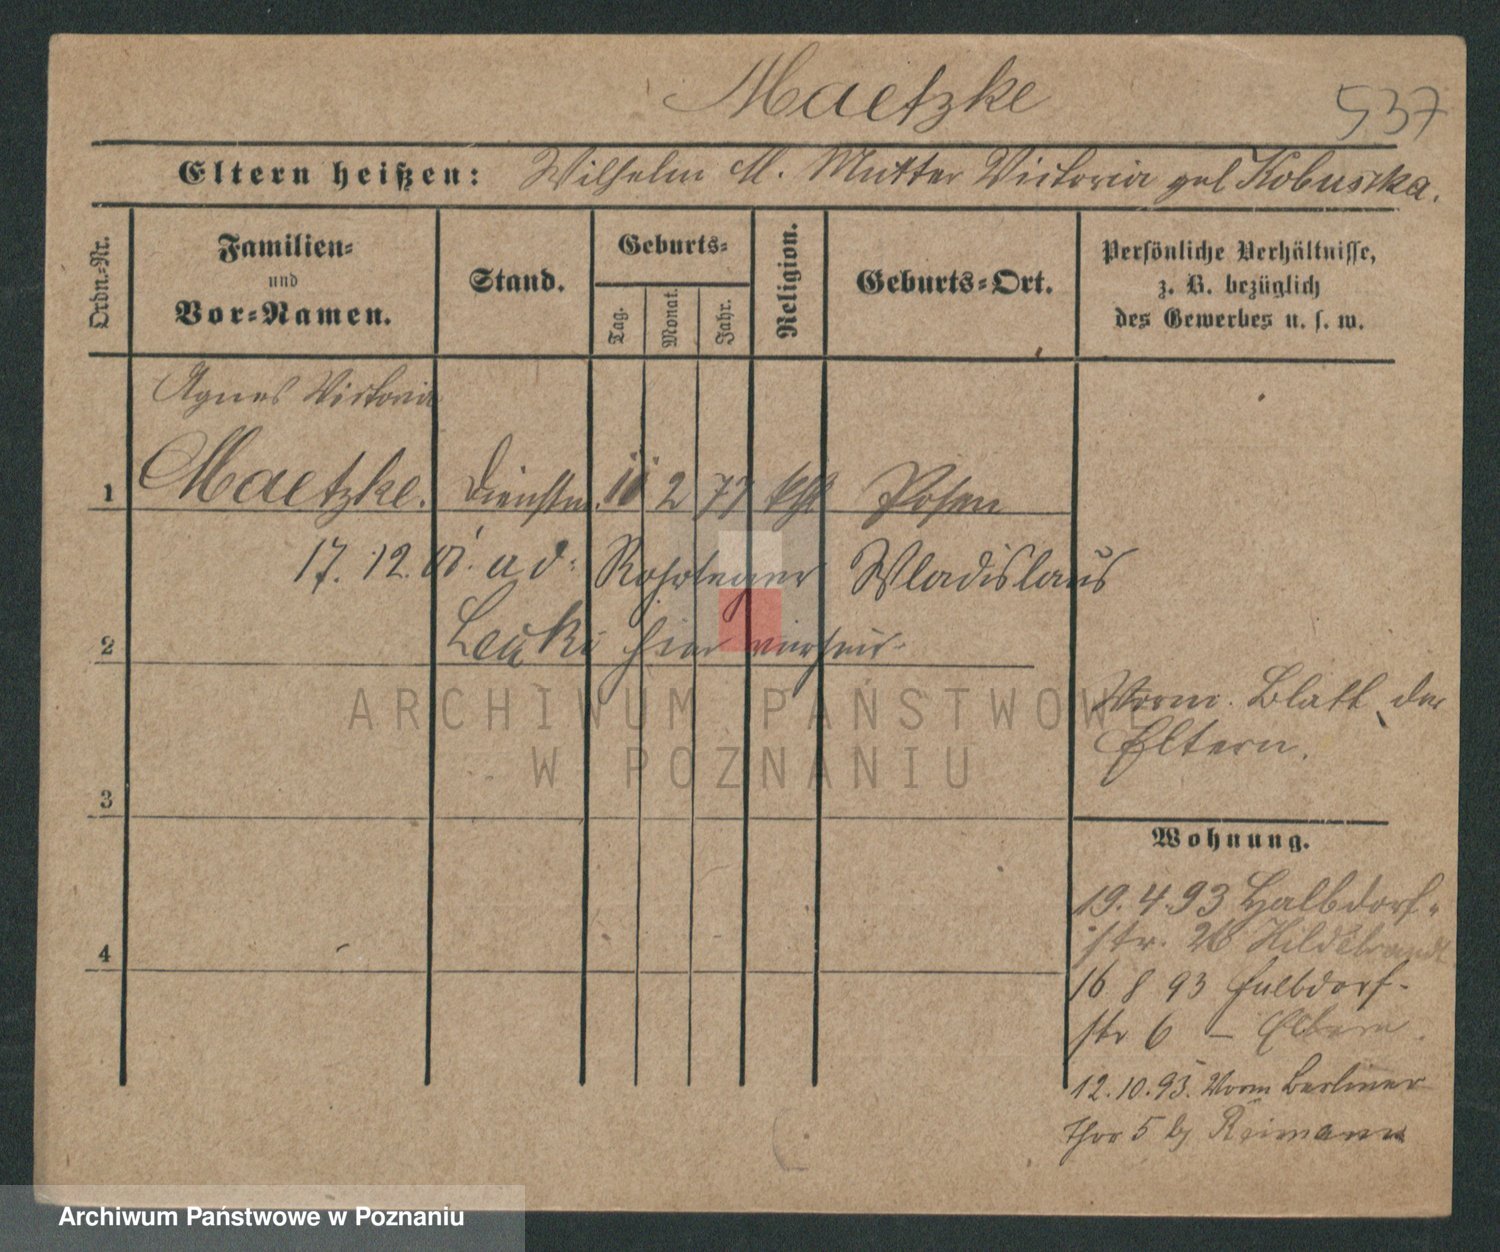 Maetzke
537
Eltern heißen: Wilhelm M. Mutter Victoria geb Kobuska.
Ordn.-Nr.
Familien- und Vor-Namen.
Stand.
Geburts-
Tag.
Monat.
Jahr.
Religion.
Geburts-Ort.
Persönliche Verhältnisse,
z. B. bezüglich
des Gewerbes u. s. w.
Agnes Victoria
1 Maetzke. Dienstm. 2 77 kth Posen
17. 12. ad: Wladislaus
2 hier
Vorm. Blatt der
Eltern.
3
Wohnung.
19. 4. 93 Halbdorf-
str. 26 Hildebrandt
4
16 8 93 Halbdorf-
str 6 – Eltern
12. 10. 93. Vorm Berliner
Thor 5 bj Reimann
ARCHIWUM PAŃSTWOWE
W POZNANIU
Archiwum Państwowe w Poznaniu